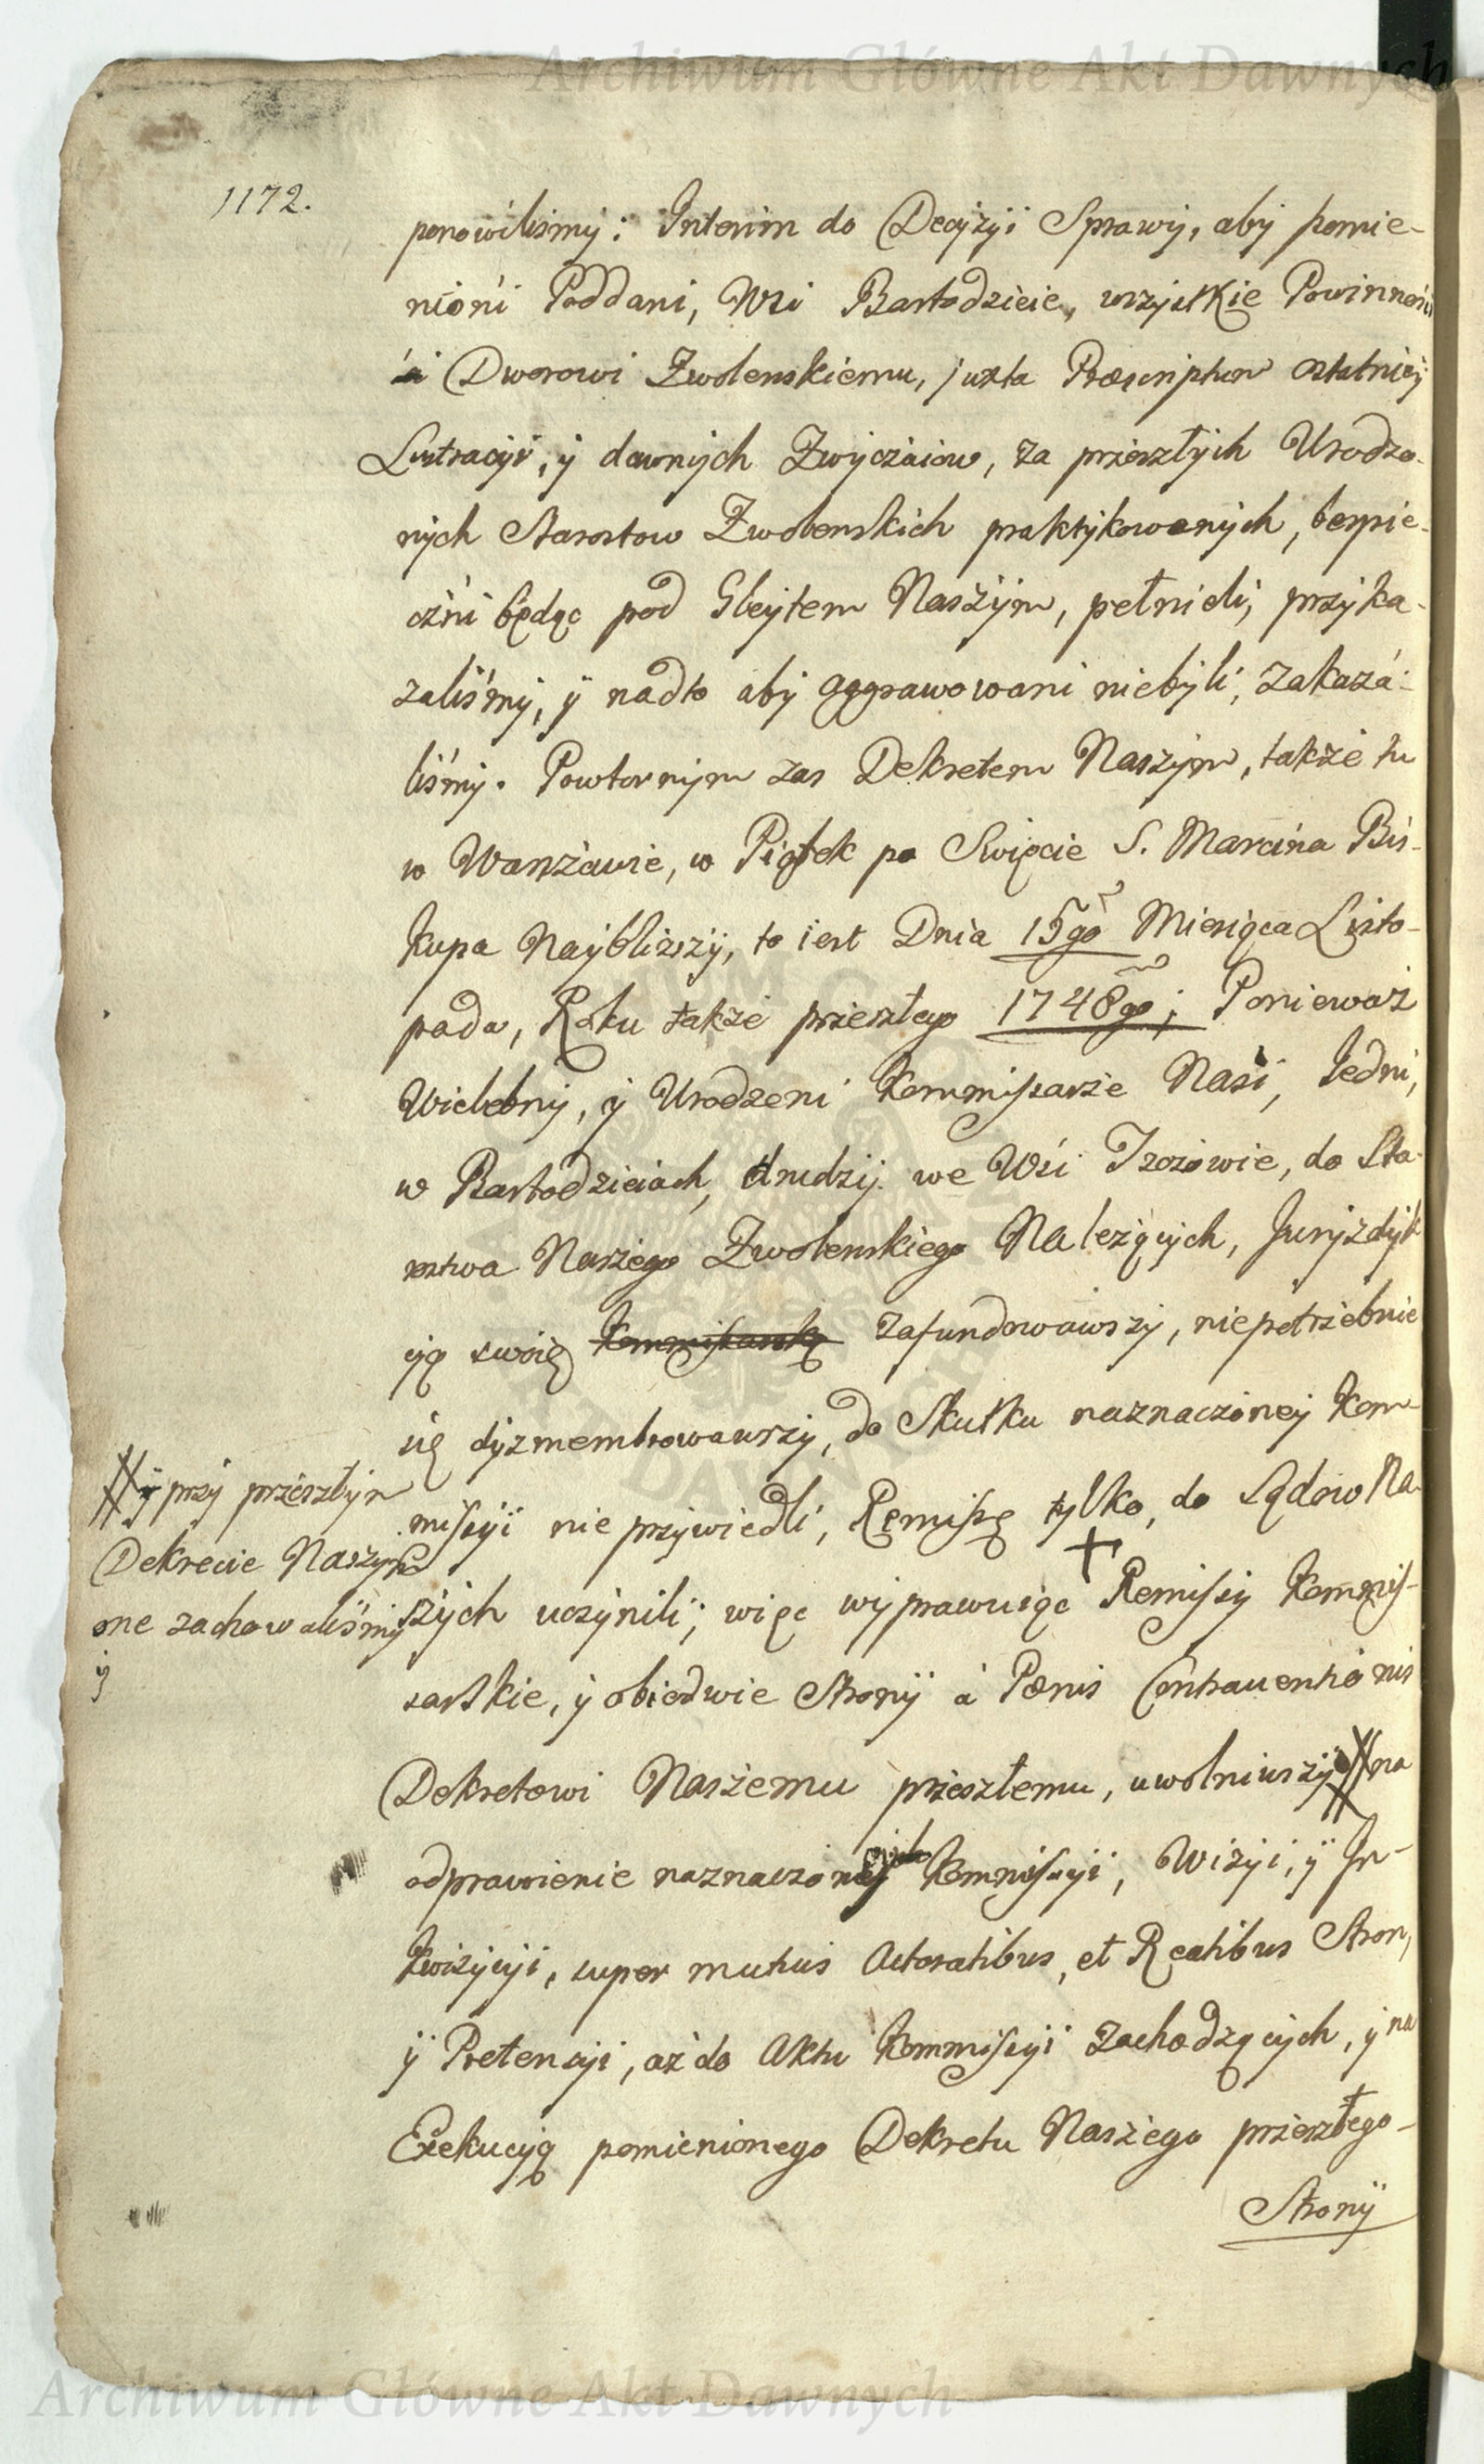 Archiwum Główne Akt Dawnych
1172.
ponowiliśmy: Interim do Decyzyi Sprawy, aby pomie-
nieni Poddani, Wsi Bartodzieie, wszystkie Powinności
Dworowi Zwolenskiemu, juxta Præscriptum ostatniey
Lustracyi, y dawnych Zwyczaiow, za przeszłych Urodzo-
nych Starostow Zwolenskich praktykowanych, bespie-
czni będąc pod Gleytem Naszym, pełnieli, przyka-
zaliśmy, y nadto aby aggrawowani niebyli, zakaza-
liśmy. Powtornym zas Dekretem Naszym, także tu
w Warszawie, w Piątek po Swięcie S. Marcina Bis-
kupa Naybliższy, to iest Dnia 15go Miesiąca Listo-
pada, Roku także przeszłego 1748go; Ponieważ
Wielebny, y Urodzeni Kommissarze Nasi, Jedni,
w Bartodzieiach, drudzy we Wsi Jzozowie, do Sta-
rostwa Naszego Zwolenskiego Należących, Juryzdyk
cyą swoię Kommissarską zafundowawszy, niepotrzebnie
się dyzmembrowawszy, do Skutku naznaczoney Kom-
missyi nie przywiedli, Remissę tylko, do Sądow Na-
szych uczynili; więc wyprawuiąc + Remissy Kommis-
sarskie, y obiedwie Strony à Pœnis Contraventionis
Dekretowi Naszemu przeszłemu, uwolniwszy # na
odprawienie naznaczoney Kommissyi, Wizyi, y In-
kwizycyi, super mutuis Actoratibus, et Reatibus Stron,
y Pretensyi, aż do Aktu Kommissyi zachodzących, y na
Exekucyą pomienionego Dekretu Naszego przeszłego-
Strony
# y przy przeszłym
Dekrecie Naszym
one zachowaliśmy
y
Archiwum Główne Akt Dawnych